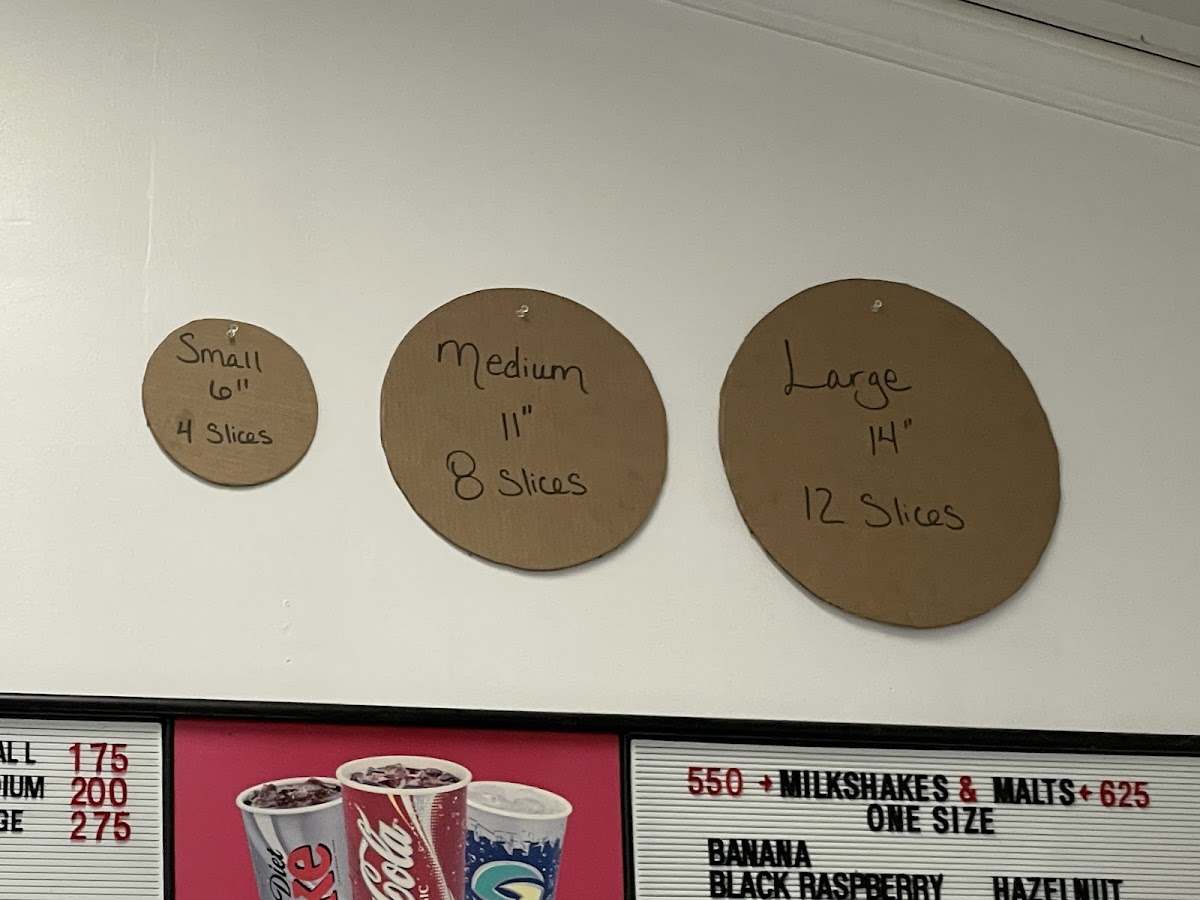 Small
6"
4 Slices
Medium
11"
8 Slices
Large
14"
12 Slices
175
200
275
Diet
Cola
550 → MILKSHAKES & MALTS ← 625
ONE SIZE
BANANA
BLACK RASPBERRY HAZELNUT